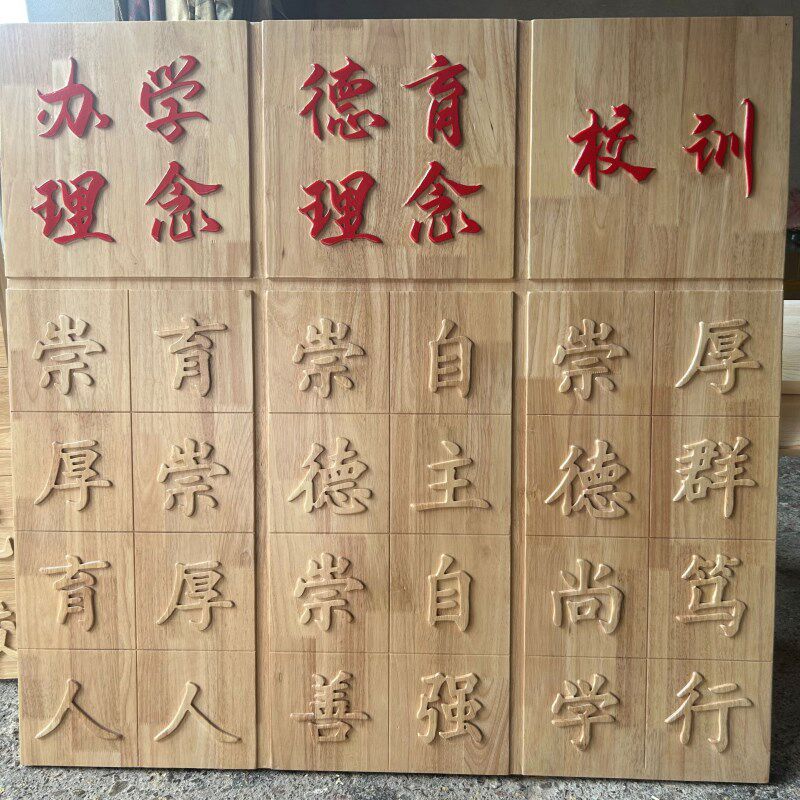 办学
理念
崇厚育人
育崇厚人
德育
理念
崇德崇善
自主自强
校训
崇德尚学
厚群笃行